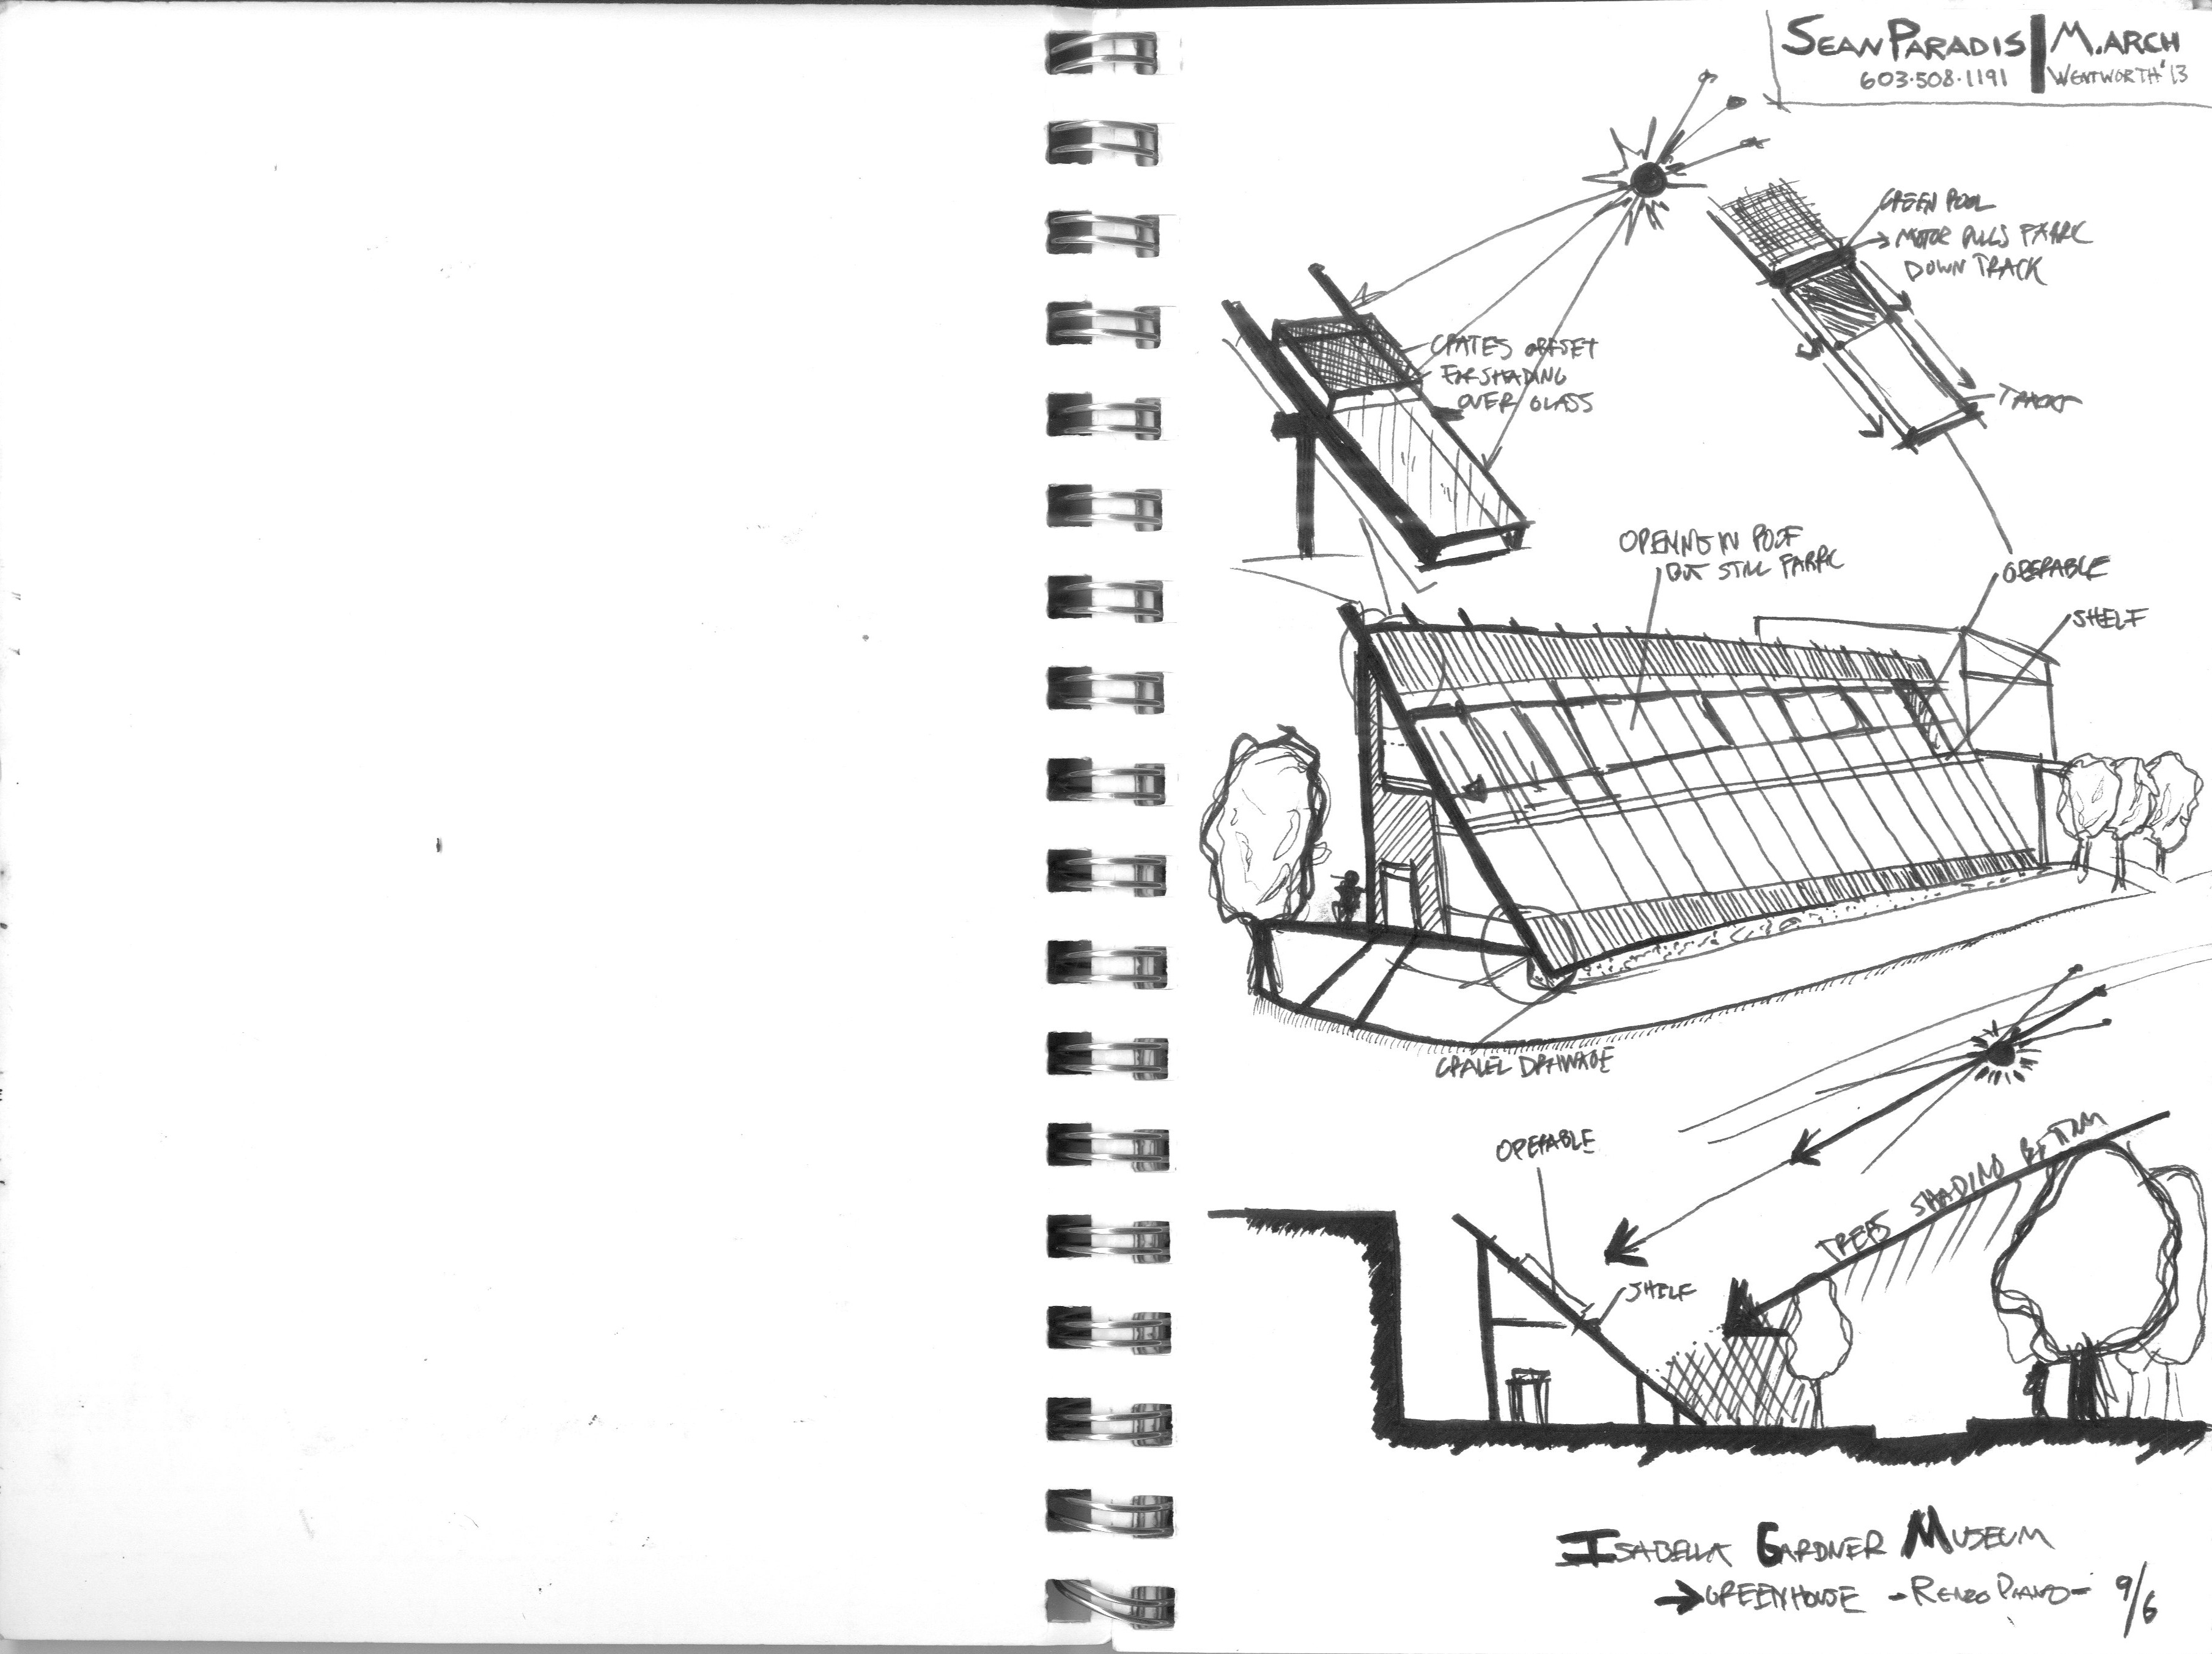 SEAN PARADIS | M.ARCH
603·508·1191 WENTWORTH '13
GREEN ROOF
→ MOTOR PULLS FABRIC
DOWN TRACK
CRATES OFFSET
FOR SHADING
OVER GLASS
TRACK
OPENING IN ROOF
BUT STILL FABRIC
OPERABLE
SHELF
GRAVEL DRAINAGE
OPERABLE
TREES SHADING BOTTOM
SHELF
ISABELLA GARDNER MUSEUM
→ GREENHOUSE - RENZO PIANO - 9/6